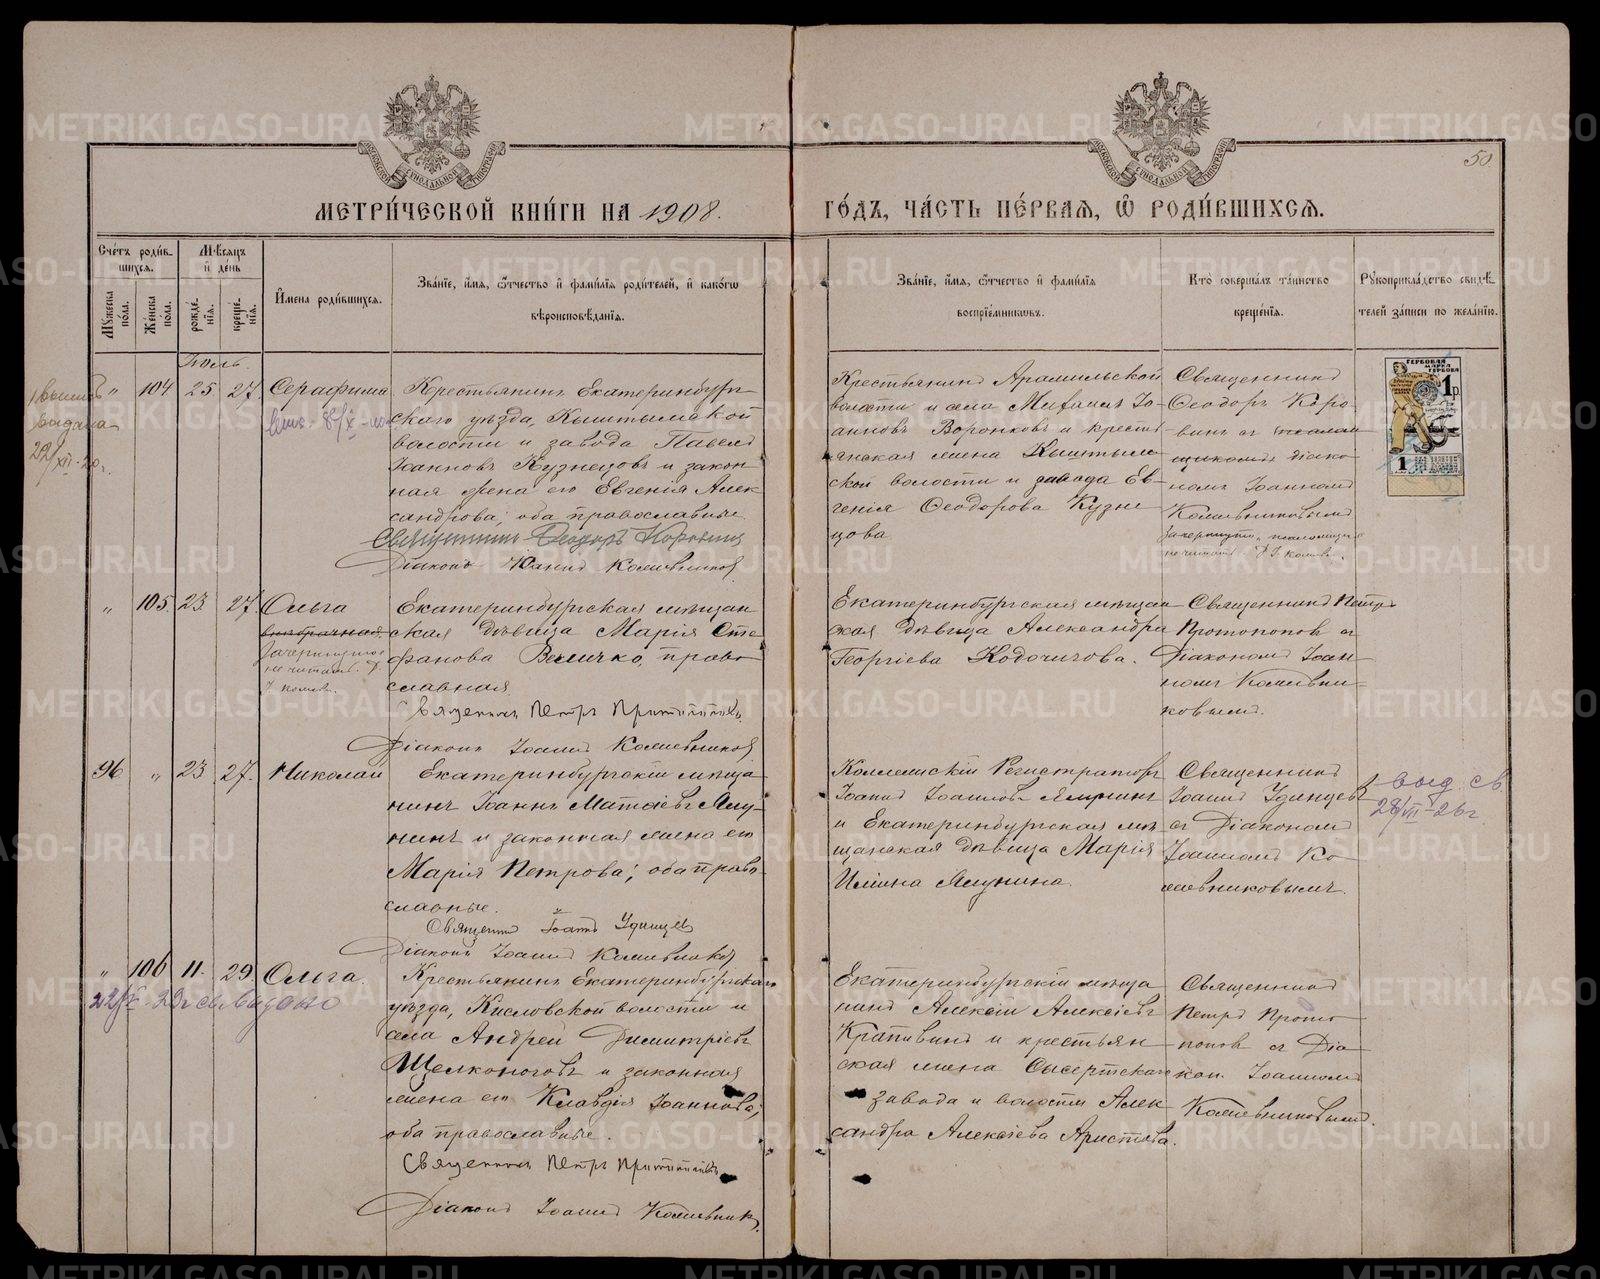 50
МОСКОВСКОЙ СѴНОДАЛЬНОЙ ТИПОГРАФІИ
МОСКОВСКОЙ СѴНОДАЛЬНОЙ ТИПОГРАФІИ
МЕТРИ́ЧЕСКОЙ КНИ́ГИ НА 1908.
ГО́ДЪ, ЧА́СТЬ ПЕ́РВАЯ, Ѡ҆ РОДИ́ВШИХСЯ.
Сче́тъ роди́в-
шихся.
Му́жеска по́ла.
Же́нска по́ла.
Мѣ́сяцъ и҆ де́нь
рожде́-нїя.
креще́-нїя.
И҆мена роди́вшихся.
Зва́нїе, и҆мя, ѻ҆́тчество и҆ фами́лїя роди́телей, и҆ како́гѡ
вѣроисповѣ́данїя.
Зва́нїе, и҆мя, ѻ҆́тчество и҆ фами́лїя
воспрїе́мниковъ.
Кто̀ соверша́лъ та́инство
креще́нїя.
Рꙋкоприкла́дство свидѣ́-
телей за́писи по жела́нїю.
Іюль.
„ 104 25 27 Серафима
Крестьянинъ Екатеринбург
скаго уѣзда, Кыштымской
волости и завода Павелъ
Іоанновъ Кузнецовъ и закон
ная жена его Евгенія Алек
сандрова; оба православные
Священникъ Ѳеодоръ Коровинъ
Діаконъ Іоаннъ Колмевниковъ
Крестьянинъ Арамильской
волости и села Михаилъ Іо-
анновъ Воронковъ и крестья
янская жена Кыштым
ской волости и завода Ев-
генія Ѳеодорова Кузне
цова
Священникъ
Ѳеодоръ Коро-
винъ съ
діако
номъ Іоанномъ
выдана
22/XII-20 г.
ГЕРБОВАЯ МАРКА
1 р.
„ 105. 23 27. Ольга
внѣбрачная
зачеркнутое
не читать.
Екатеринбургская мѣщан
ская дѣвица Марія Сте
фанова Величко, право
славная
Священникъ Петръ Протопоповъ
Діаконъ Іоаннъ
Екатеринбургская мѣщан
ская дѣвица Александра
Георгіева Кодочигова.
Священникъ Петръ
Протопоповъ съ
Діакономъ Іоан-
номъ
ковымъ.
96 „ 23 27. Николай
Екатеринбургскій мѣща
нинъ Іоаннъ Матѳіевъ Ялу-
нинъ и законная жена его
Марія Петрова; оба право-
славные.
Священникъ Іоаннъ Удинцевъ
Діаконъ Іоаннъ
Коллежскій Регистраторъ
Іоаннъ Іоанновъ Ялунинъ
и Екатеринбургская мѣ
щанская дѣвица Марія
Иліина Ялунина.
Священникъ
Іоаннъ Удинцевъ
съ Діакономъ
Іоанномъ Ко
выд. св.
28/III-26 г.
„ 106 11. 29 Ольга.
Крестьянинъ Екатеринбургскаго
уѣзда, Кисловской волости и
села Андрей Димитріевъ
Щелконоговъ и законная
жена его Клавдія Іоаннова;
оба православные.
Священникъ Петръ Протопоповъ
Діаконъ Іоаннъ
Екатеринбургскій мѣща
нинъ Алексій Алексіевъ
Крапивинъ и крестьян
ская жена Сысертскаго
завода и волости Алек
сандра Алексіева Аристова.
Священникъ
Петръ Прото
поповъ съ Діа
кон. Іоанномъ